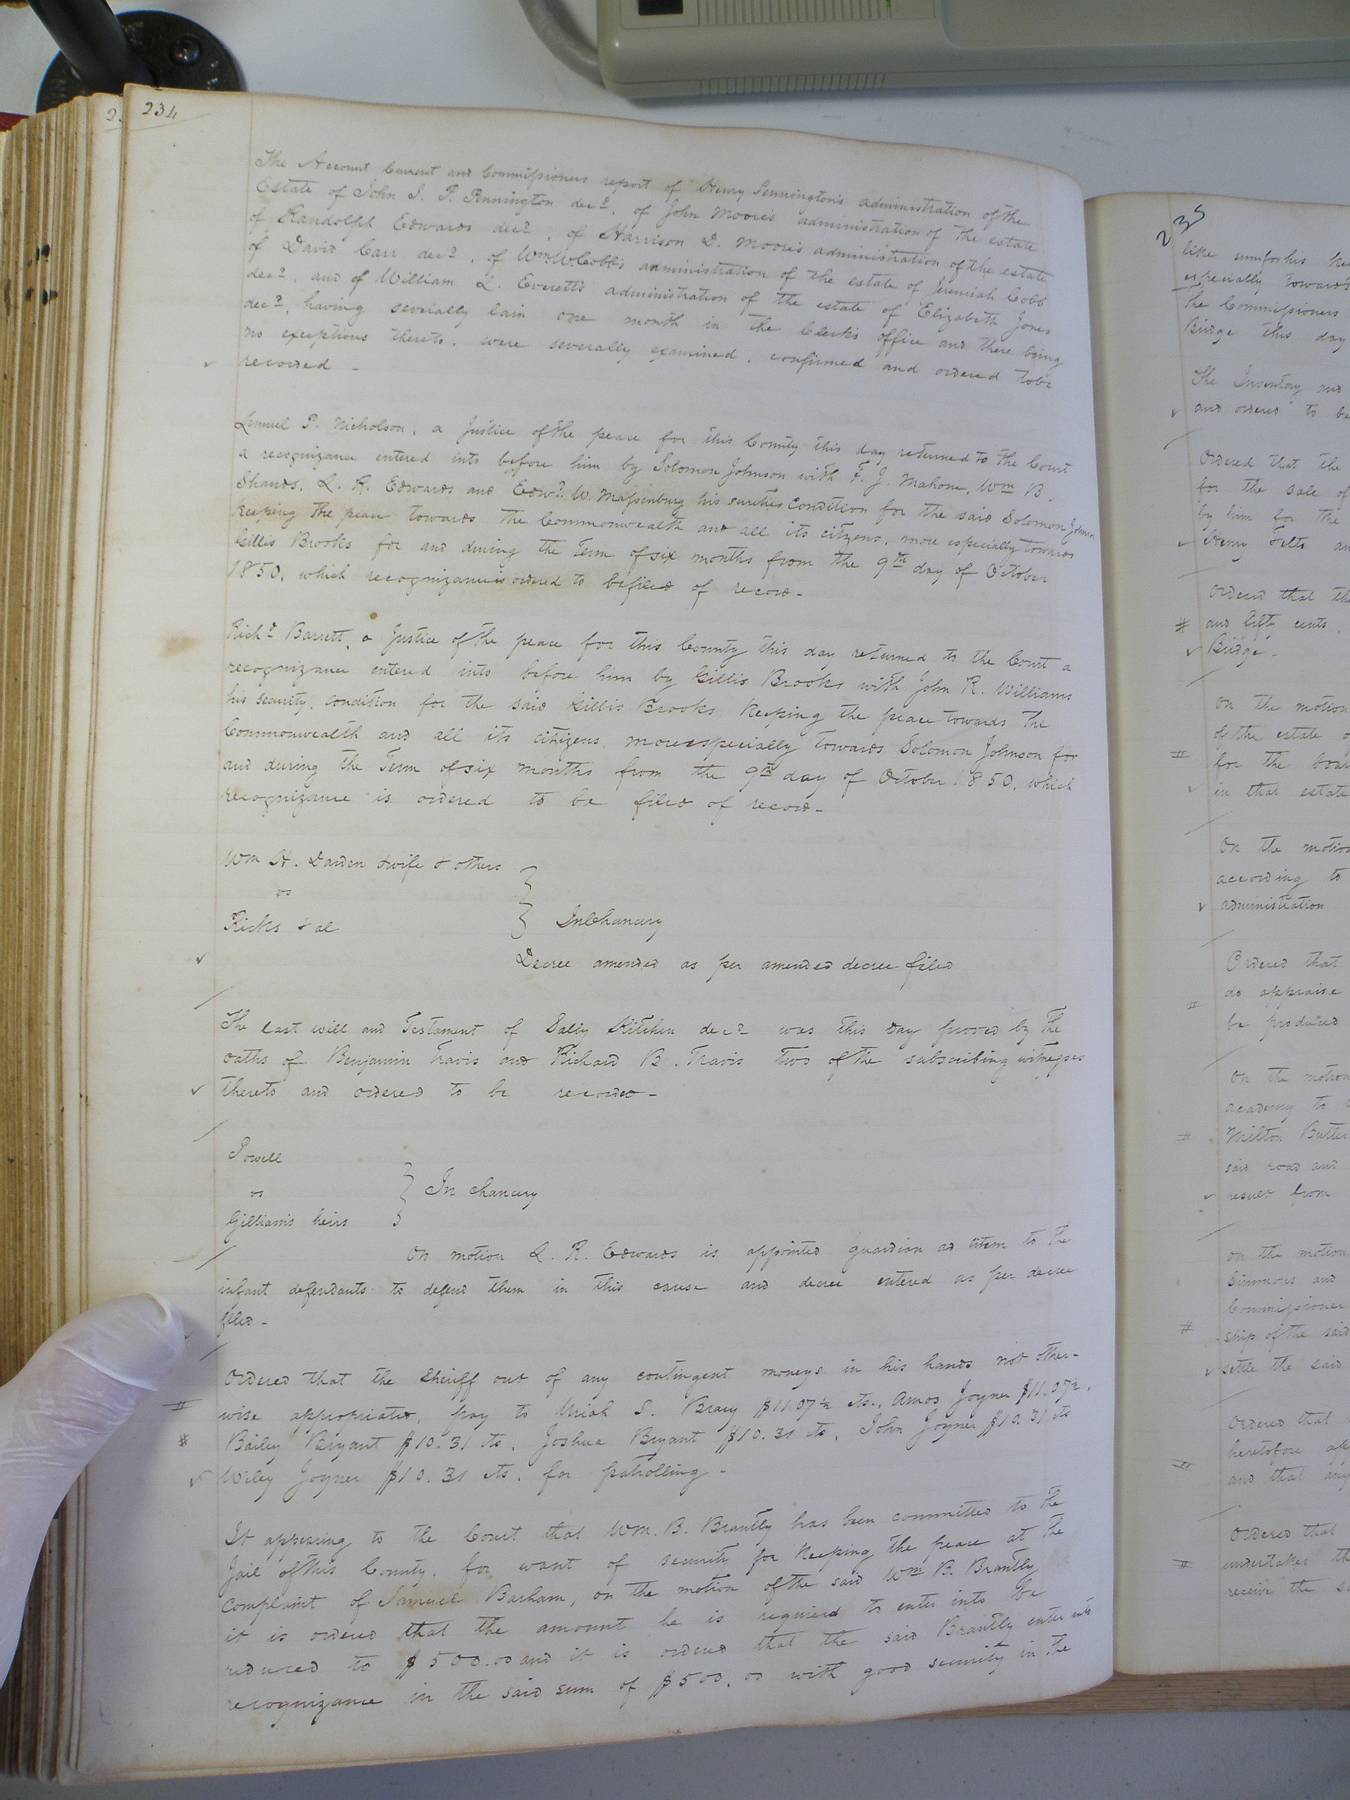 234
The Account Current and Commissioners report of Henry Pennington's administration of the
Estate of John I. P. Pennington decd. of John Moore's administration of the estate
of Randolph Edwards decd. of Harrison D. Moore's administration of the estate
of David Carr decd. of Wm. W. Cobb's administration of the estate of Jeremiah Cobb
decd. and of William L. Everett's administration of the estate of Elizabeth Jones
decd. having severally lain one month in the Clerk's office and there being
no exceptions thereto, were severally examined, confirmed and ordered to be
recorded -
Lemuel P. Nicholson, a Justice of the peace for this County this day returned to the Court
a recognizance entered into before him by Solomon Johnson with F. J. Mahone, Wm B.
Shands, L. R. Edwards and Edwd. W. Massenburg his sureties Condition for the said Solomon Johnson
keeping the peace towards the Commonwealth and all its citizens, more especially towards
Gillis Brooks for and during the Term of six months from the 9th day of October
1850, which recognizance is ordered to be filed of record -
Richd Barrett, a Justice of the peace for this County this day returned to the Court a
recognizance entered into before him by Gillis Brooks with John R. Williams
his security, condition for the said Gillis Brooks keeping the peace towards the
Commonwealth and all its citizens, more especially towards Solomon Johnson for
and during the Term of six months from the 9th day of October 1850, which
recognizance is ordered to be filed of record -
Wm H. Darden & wife & others
vs
Ricks & al
In Chancery
Decree amended as per amended decree filed
The last will and Testament of Sally Kitchen decd was this day proved by the
oaths of Benjamin Travis and Richard B. Travis two of the subscribing witnesses
thereto and ordered to be recorded -
Powell
vs
Gilliam's heirs
In chancery
On motion L. R. Edwards is appointed guardian ad litem to the
infant defendants to defend them in this cause and decree entered as per decree
filed -
Ordered that the Sheriff out of any contingent moneys in his hands not other-
wise appropriated, pay to Uriah S. Bracy $11.07½ cts., Amos Joyner $11.07½,
Bailey Bryant $10.31 cts, Joshua Bryant $10.31 cts, John Joyner $10.31 cts
Wiley Joyner $10.31 cts. for patrolling -
It appearing to the Court that Wm. B. Brantly has been committed to the
Jail of this County, for want of security for keeping the peace at the
complaint of Samuel Barham, on the motion of the said Wm B. Brantly
it is ordered that the amount he is required to enter into be
reduced to $500.00 and it is ordered that the said Brantly enter into
recognizance in the said sum of $500.00 with good security in the
235
especially towards
the Commissioners
Bridge this day
The Inventory and
and ordered to be
Ordered that the
for the sale of
by him for the
Henry Felts an
Ordered that the
and fifty cents
Bridge -
On the motion
of the estate o
for the
in that estate
On the motion
according to
administration
Ordered that
do appraise
be produced
On the motion
academy to
Milton Butler
said road and
result from
On the motion
Simmons and
Commissioner
ship of the said
settle the said
Ordered that
heretofore app
and that any
Ordered that
undertaker th
receive the